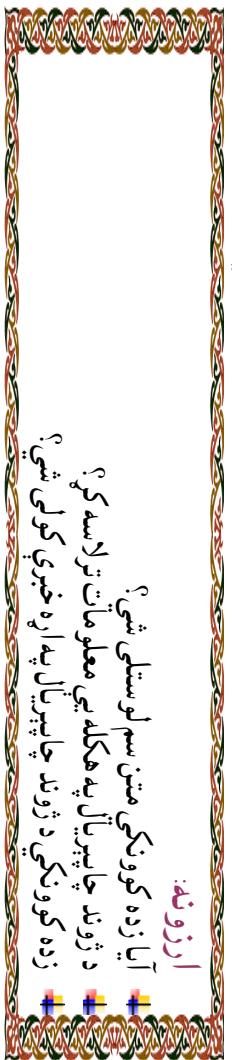 ارزونه:
آيا زده کوونکی متن سم لوستلی شي؟
د ژوند چاپيريال په هکله يې معلومات ترلاسه کړ؟
زده کوونکي د ژوند چاپيريال په اړه خبرې کولی شي؟